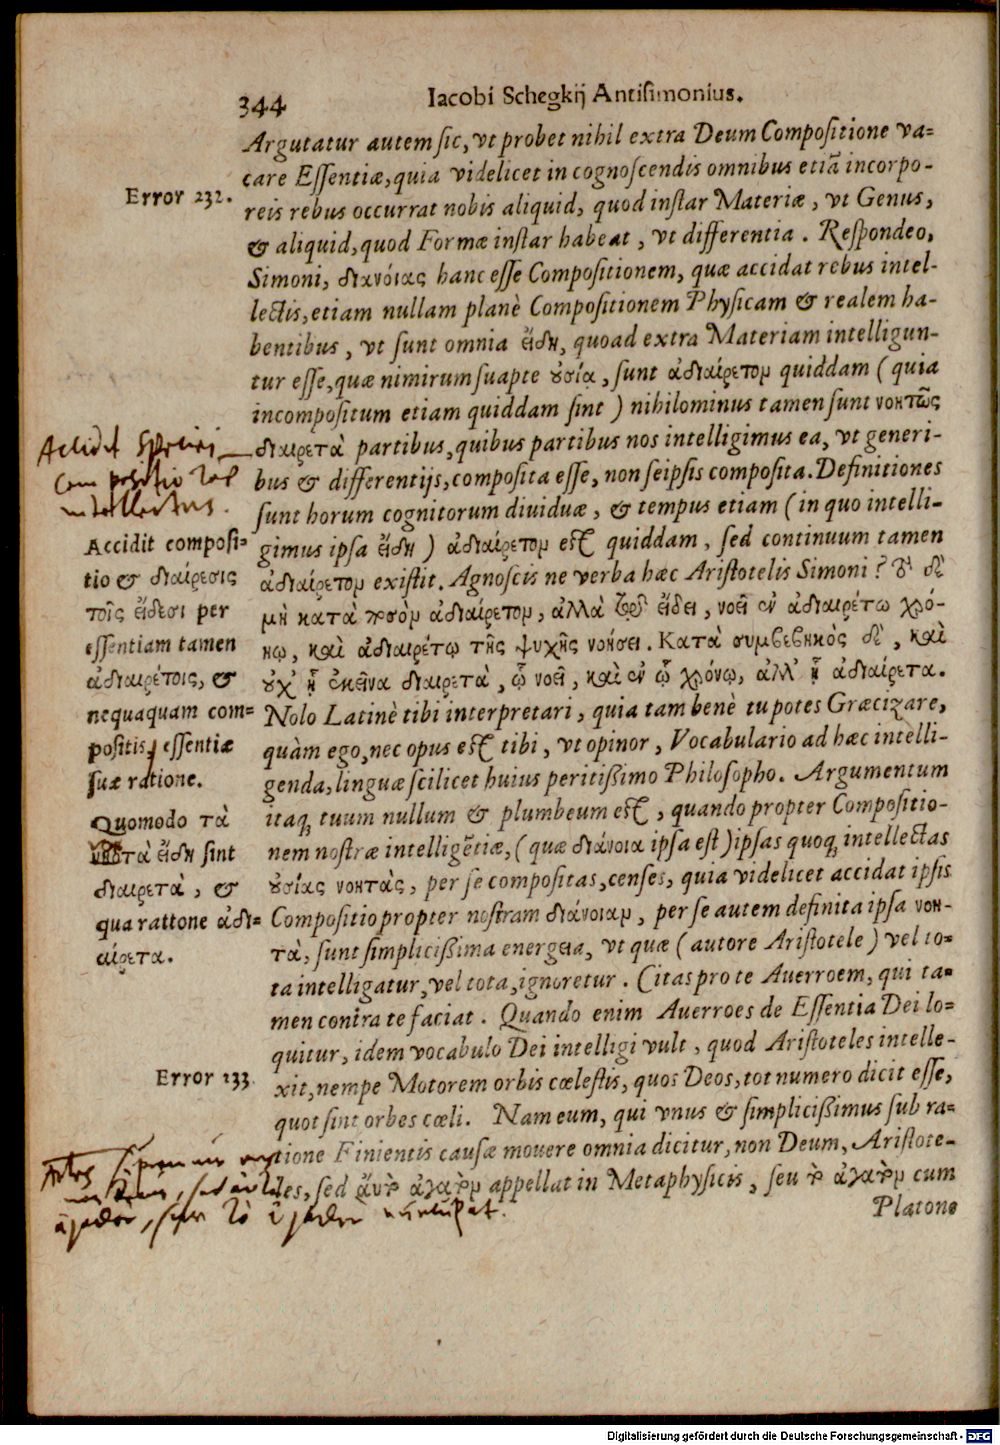 344
Iacobi Schegkij Antisimonius.
Argutatur autem sic, vt probet nihil extra Deum Compositione va=
care Essentiæ, quia videlicet in cognoscendis omnibus etiã incorpo-
Error 232.
reis rebus occurrat nobis aliquid, quod instar Materiæ, vt Genus,
& aliquid, quod Formæ instar habeat, vt differentia. Respondeo,
Simoni, διανόιας hanc esse Compositionem, quæ accidat rebus intel-
lectis, etiam nullam planè Compositionem Physicam & realem ha-
bentibus, vt sunt omnia ἔιδη, quoad extra Materiam intelligun-
tur esse, quæ nimirum suapte ουσία, sunt ἀδιαίρετομ quiddam (quia
incompositum etiam quiddam sint) nihilominus tamen sunt νοητῶς
διαιρετὰ partibus, quibus partibus nos intelligimus ea, vt generi-
bus & differentijs, composita esse, non seipsis composita. Definitiones
sunt horum cognitorum diuiduæ, & tempus etiam (in quo intelli-
gimus ipsa ἔιδη) ἀδιαίρετομ est quiddam, sed continuum tamen
ἀδιαίρετομ existit. Agnoscis ne verba hæc Aristotelis Simoni? τὸ δὲ
μὴ κατὰ ποσὸμ ἀδιαίρετομ, ἀλλὰ τῷ ἔιδει, νοεῖ ἐν ἀδιαιρέτω χρό-
νῳ, καὶ ἀδιαιρέτῳ τῆς ψυχῆς νοήσει. Κατὰ συμβεβηκὸς δὲ, καὶ
ουχ' ᾗ ἐκεῖνα διαιρετὰ, ᾧ νοεῖ, καὶ ἐν ᾧ χρόνῳ, ἀλλ' ᾗ ἀδιαίρετα.
Nolo Latinè tibi interpretari, quia tam benè tu potes Græcizare,
quàm ego, nec opus est tibi, vt opinor, Vocabulario ad hæc intelli-
genda, linguæ scilicet huius peritißimo Philosopho. Argumentum
itaq; tuum nullum & plumbeum est, quando propter Compositio-
nem nostræ intelligẽtiæ, (quæ διάνοια ipsa est) ipsas quoq; intellectas
ουσίας νοητὰς, per se compositas, censes, quia videlicet accidat ipsis
Compositio propter nostram διάνοιαμ, per se autem definita ipsa νοη-
τὰ, sunt simplicißima energεια, vt quæ (autore Aristotele) vel to=
ta intelligatur, vel tota, ignoretur. Citas pro te Auerroem, qui ta=
men contra te faciat. Quando enim Auerroes de Essentia Dei lo=
quitur, idem vocabulo Dei intelligi vult, quod Aristoteles intelle-
Error 133.
xit, nempe Motorem orbis cœlestis, quos Deos, tot numero dicit esse,
quot sint orbes cœli. Nam eum, qui vnus & simplicißimus sub ra=
tione Finientis causæ mouere omnia dicitur, non Deum, Aristote-
les, sed ἀυτὸ ἀγαθὸμ appellat in Metaphysicis, seu τὸ ἀγαθὸμ cum
Platone
Accidit Speciei
compositio
intellectus.
Accidit composi=
tio & διαίρεσις
τοῖς ἔιδεσι per
essentiam tamen
ἀδιαιρέτοις, &
nequaquam com=
positis, essentiæ
suæ ratione.
Quomodo τὰ
νοητὰ ἔιδη sint
διαιρετὰ, &
qua rattone ἀδι=
αίρετα.
Digitalisierung gefördert durch die Deutsche Forschungsgemeinschaft - DFG